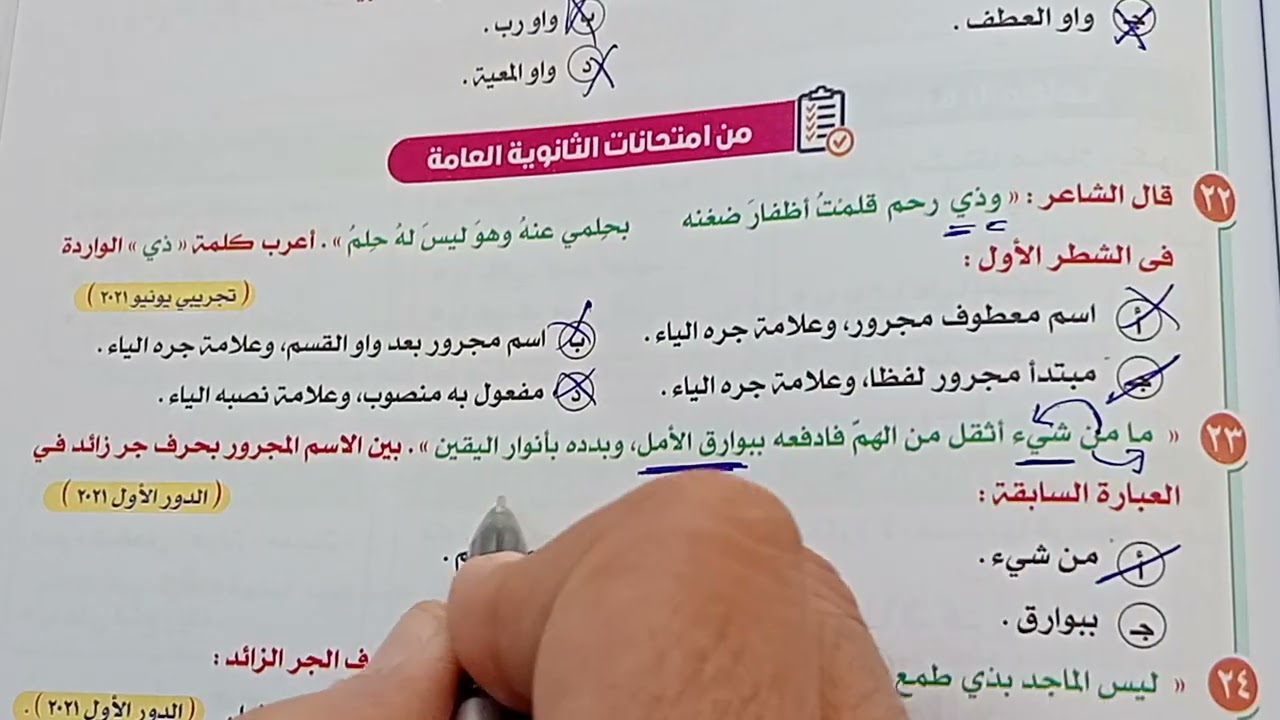 جـ واو العطف.
ب واو رب.
د واو المعية.
من امتحانات الثانوية العامة
٢٢ قال الشاعر: « وذي رحم قلمْتُ أظفارَ ضغنه بحِلمي عنهُ وهوَ ليسَ لهُ حِلمُ ». أعرب كلمة « ذي » الواردة
فى الشطر الأول:
( تجريبي يونيو ٢٠٢١ )
أ اسم معطوف مجرور، وعلامة جره الياء.
ب اسم مجرور بعد واو القسم، وعلامة جره الياء.
جـ مبتدأ مجرور لفظا، وعلامة جره الياء.
د مفعول به منصوب، وعلامة نصبه الياء.
٢٣ « ما من شيء أثقل من الهمّ فادفعه ببوارق الأمل، وبدده بأنوار اليقين ». بين الاسم المجرور بحرف جر زائد في
العبارة السابقة:
( الدور الأول ٢٠٢١ )
أ من شيء.
جـ ببوارق.
٢٤ « ليس الماجد بذي طمع
الجر الزائد:
( الدور الأول ٢٠٢١ ).